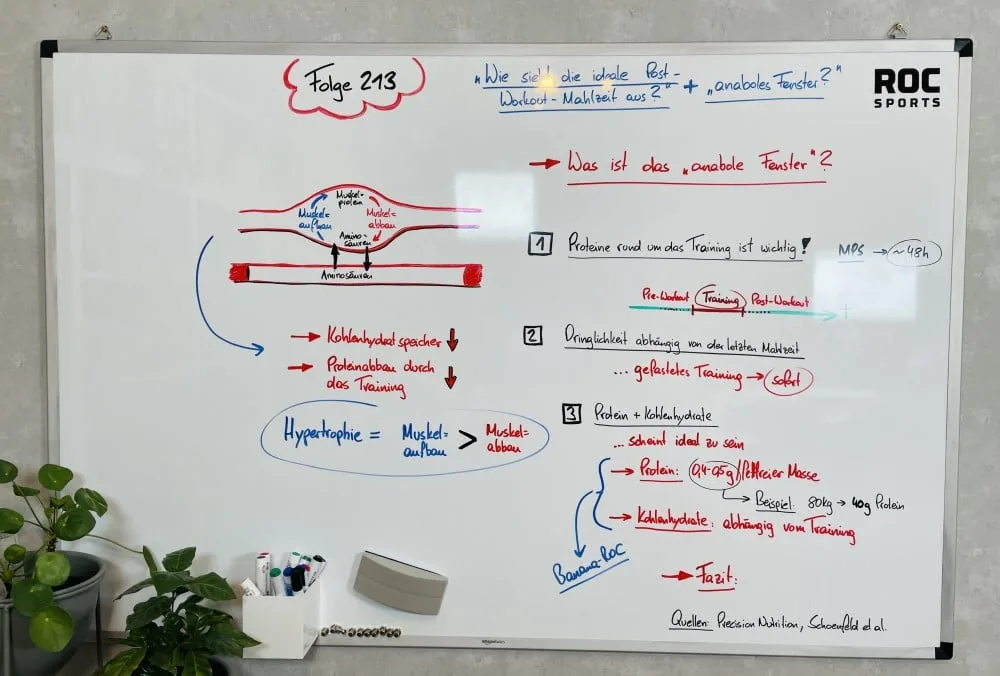 Folge 213
"Wie sieht die ideale Post-
Workout-Mahlzeit aus?" + "anaboles Fenster?"
ROC
SPORTS
→ Was ist das "anabole Fenster"?
Muskel=
protein
Muskel=
aufbau
Muskel=
abbau
Amino-
säuren
Aminosäuren
→ Kohlenhydratspeicher ↓
→ Proteinabbau durch
das Training ↓
Hypertrophie = Muskel=
aufbau > Muskel=
abbau
1 Proteine rund um das Training ist wichtig!
MPS → ~48h
Pre-Workout Training Post-Workout
2 Dringlichkeit abhängig von der letzten Mahlzeit
... gefastetes Training → sofort
3 Protein + Kohlenhydrate
... scheint ideal zu sein
→ Protein: 0,4-0,5g/fettfreier Masse
→ Beispiel: 80kg → 40g Protein
→ Kohlenhydrate: abhängig vom Training
Banana-ROC
→ Fazit:
Quellen: Precision Nutrition, Schoenfeld et al.
amazonbasics